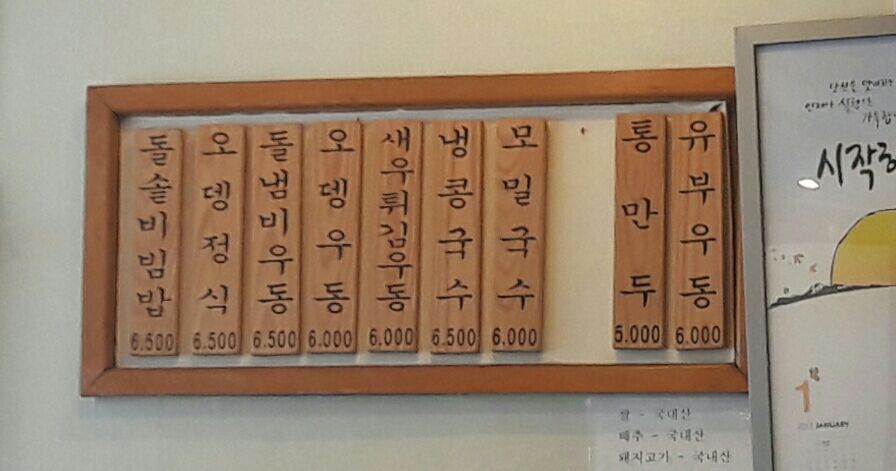 돌솥비빔밥 6.500
오뎅정식 6.500
돌냄비우동 6.500
오뎅우동 6.000
새우튀김우동 6.000
냉콩국수 6.500
모밀국수 6.000
통만두 5.000
유부우동 6.000
시작
1월
JANUARY
쌀 - 국내산
배추 - 국내산
돼지고기 - 국내산